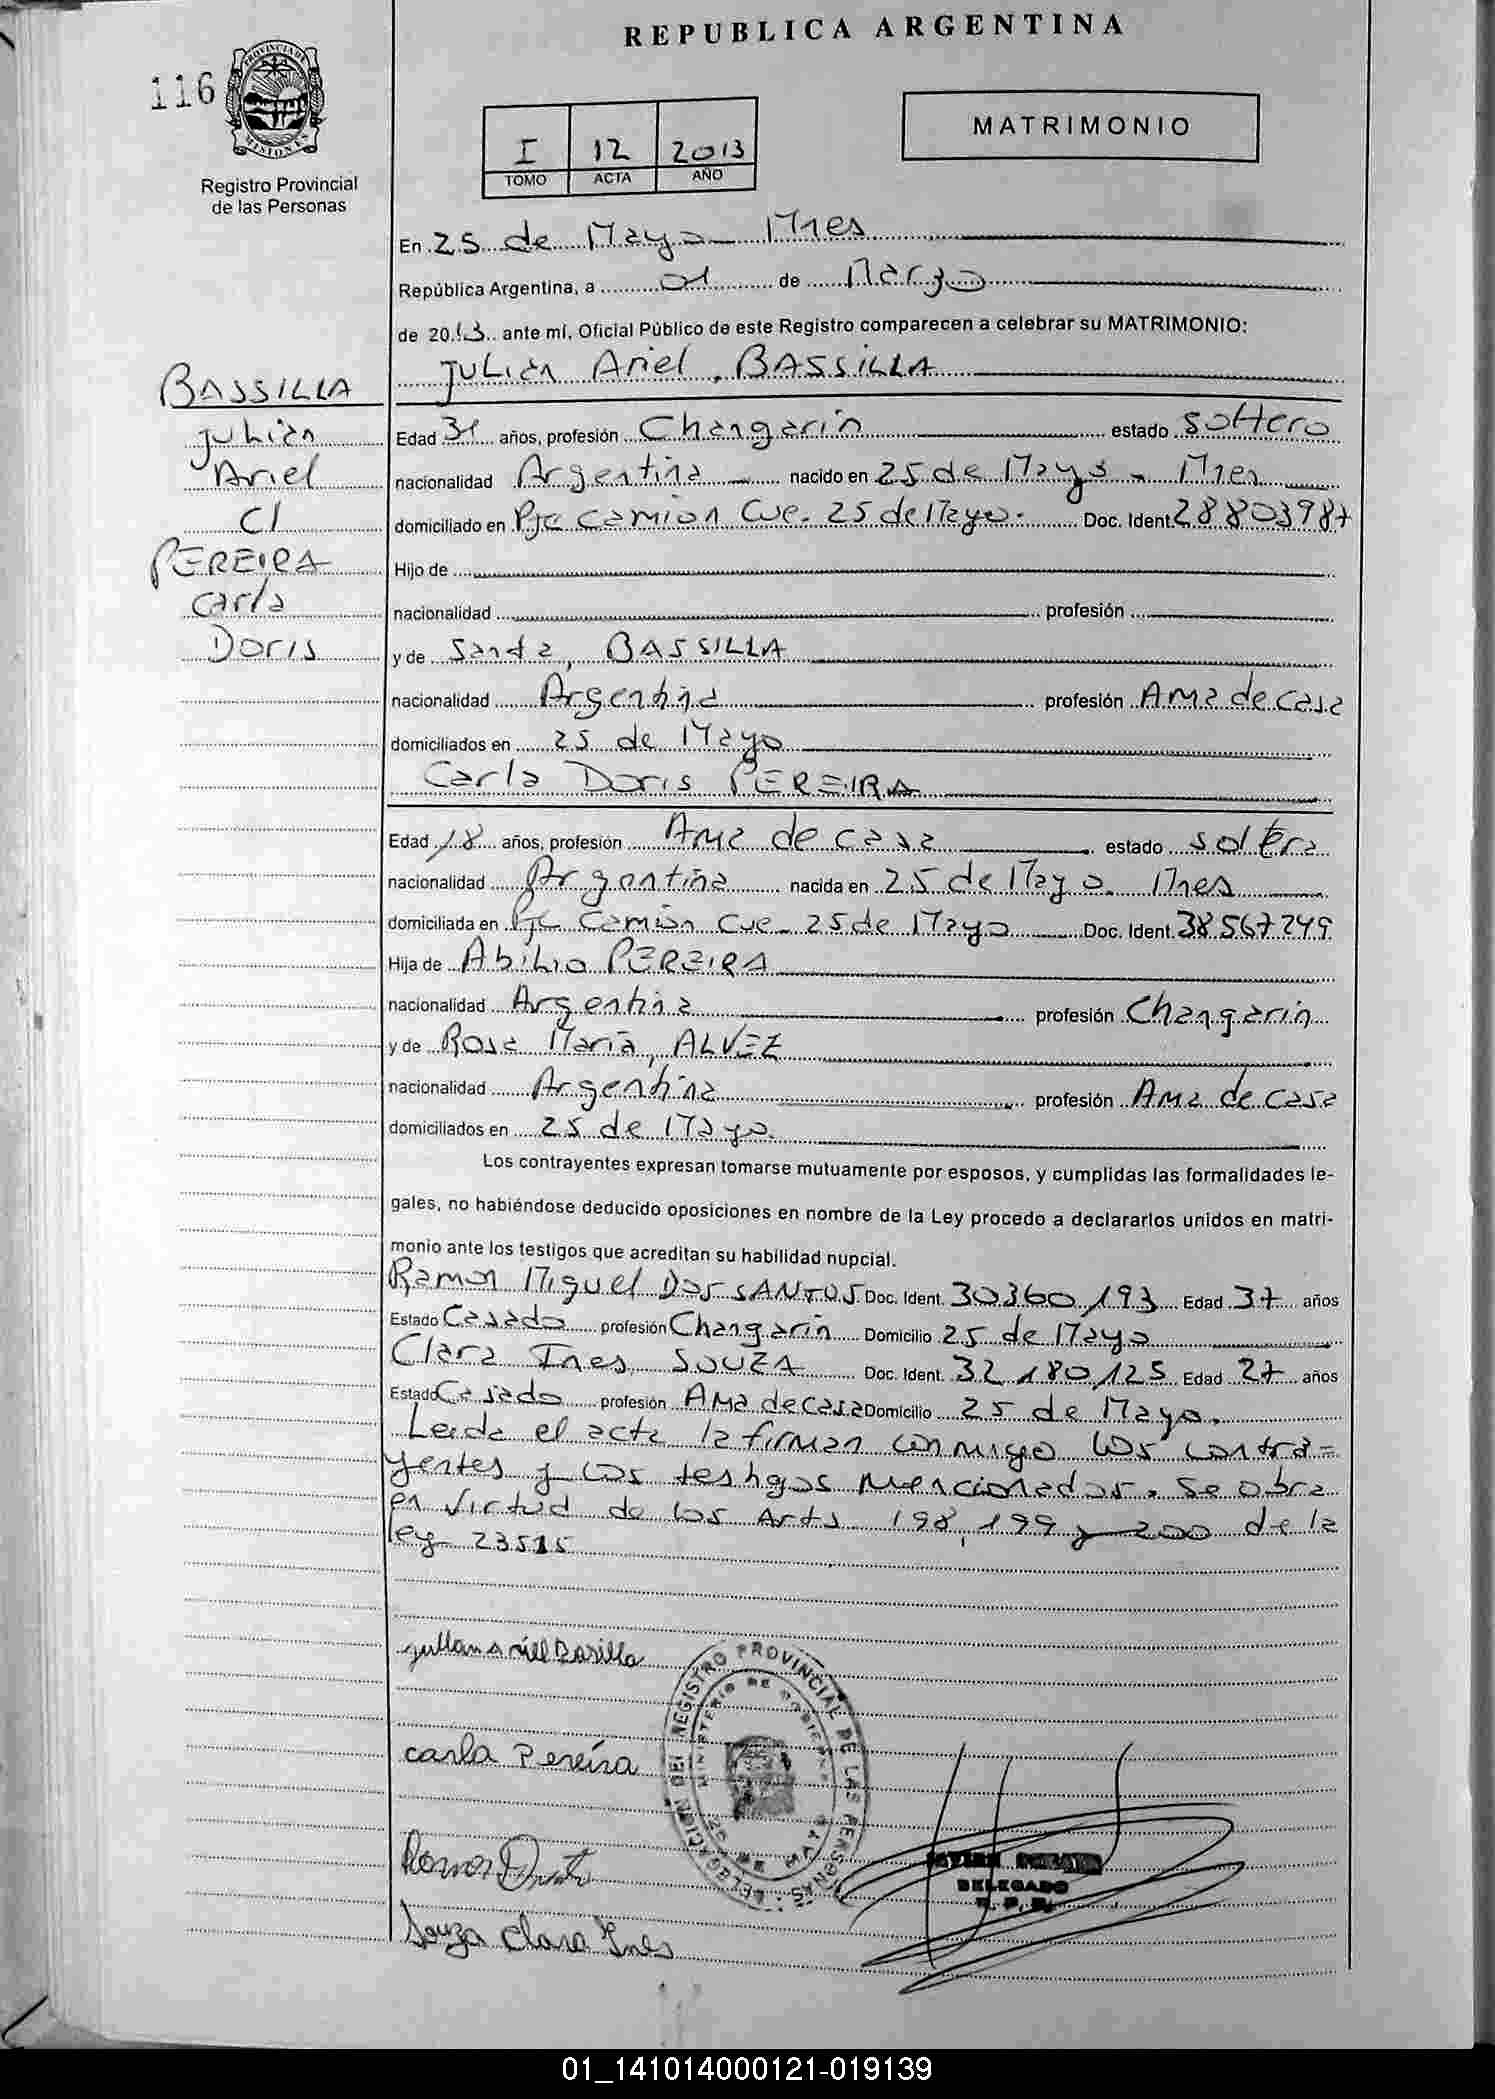 REPUBLICA ARGENTINA
116
PROVINCIA DE MISIONES
Registro Provincial
de las Personas
I 12 2013
TOMO ACTA AÑO
MATRIMONIO
En 25 de Mayo Mnes
República Argentina, a 01 de Marzo
de 2013 ante mí, Oficial Público de este Registro comparecen a celebrar su MATRIMONIO:
Julián Ariel, BASSILLA
BASSILLA
Julián
Ariel
C/
PEREIRA
Carla
Doris
Edad 31 años, profesión Changarin estado soltero
nacionalidad Argentina nacido en 25 de Mayo - Mnes
domiciliado en Pje Camion Cue. 25 de Mayo. Doc. Ident. 28803987
Hijo de
nacionalidad profesión
y de Santa, BASSILLA
nacionalidad Argentina profesión Ama de casa
domiciliados en 25 de Mayo
Carla Doris PEREIRA
Edad 18 años, profesión Ama de casa estado soltera
nacionalidad Argentina nacida en 25 de Mayo. Mnes
domiciliada en Pje Camión Cue - 25 de Mayo Doc. Ident. 38567249
Hija de Abilio PEREIRA
nacionalidad Argentina profesión Changarin
y de Rosa María, ALVEZ
nacionalidad Argentina profesión Ama de casa
domiciliados en 25 de Mayo.
Los contrayentes expresan tomarse mutuamente por esposos, y cumplidas las formalidades le-
gales, no habiéndose deducido oposiciones en nombre de la Ley procedo a declararlos unidos en matri-
monio ante los testigos que acreditan su habilidad nupcial.
Ramon Miguel DOS SANTOS Doc. Ident. 30360193 Edad 37 años
Estado Casado profesión Changarin Domicilio 25 de Mayo
Clara Ines SOUZA Doc. Ident. 32,180,125 Edad 27 años
Estado Casado profesión Ama de casa Domicilio 25 de Mayo.
Leida el acta la firman conmigo los contra=
yentes y los testigos mencionados. Se obra
en virtud de los Arts 198, 199 y 200 de la
ley 23515
Julian Ariel Basilla
Carla Pereira
DELEGACION DEL REGISTRO PROVINCIAL DE LAS PERSONAS
MINISTERIO DE GOBIERNO
25 DE MAYO
DELEGADO
Souza Clara Ines
01_141014000121-019139